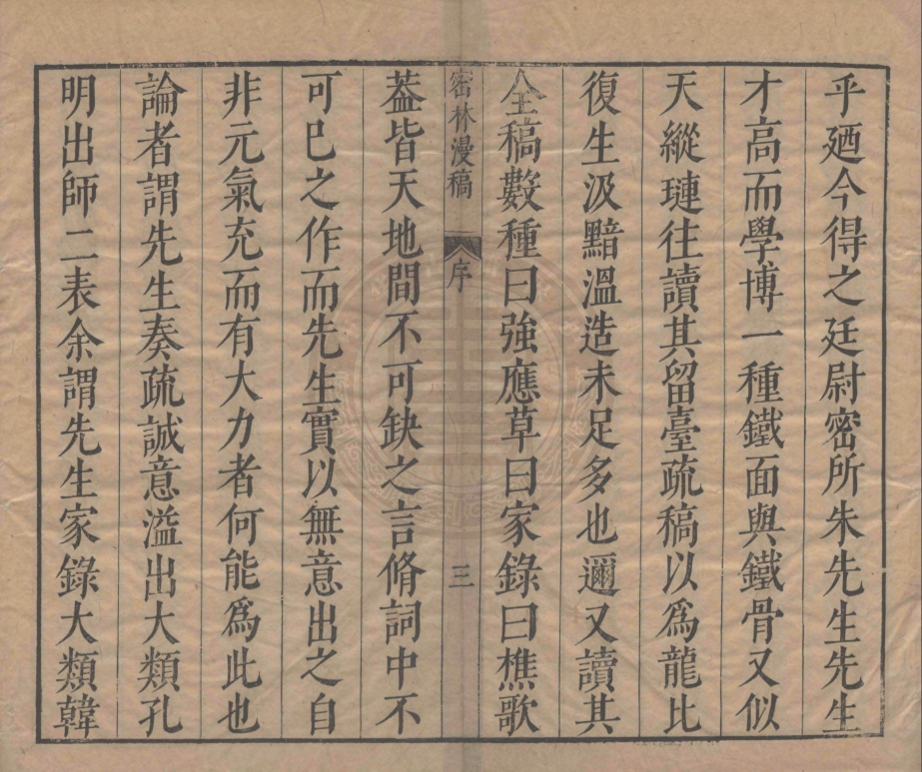 乎廼今得之廷尉密所朱先生先生
才高而學博一種鐵面與鐵骨又似
天縱璉往讀其留臺疏稿以為龍比
復生汲黯溫造未足多也邇又讀其
全稿數種曰強應草曰家錄曰樵歌
密林漫稿 序 三
葢皆天地間不可缺之言脩詞中不
可已之作而先生實以無意出之自
非元氣充而有大力者何能為此也
論者謂先生奏疏誠意溢出大類孔
明出師二表余謂先生家錄大類韓